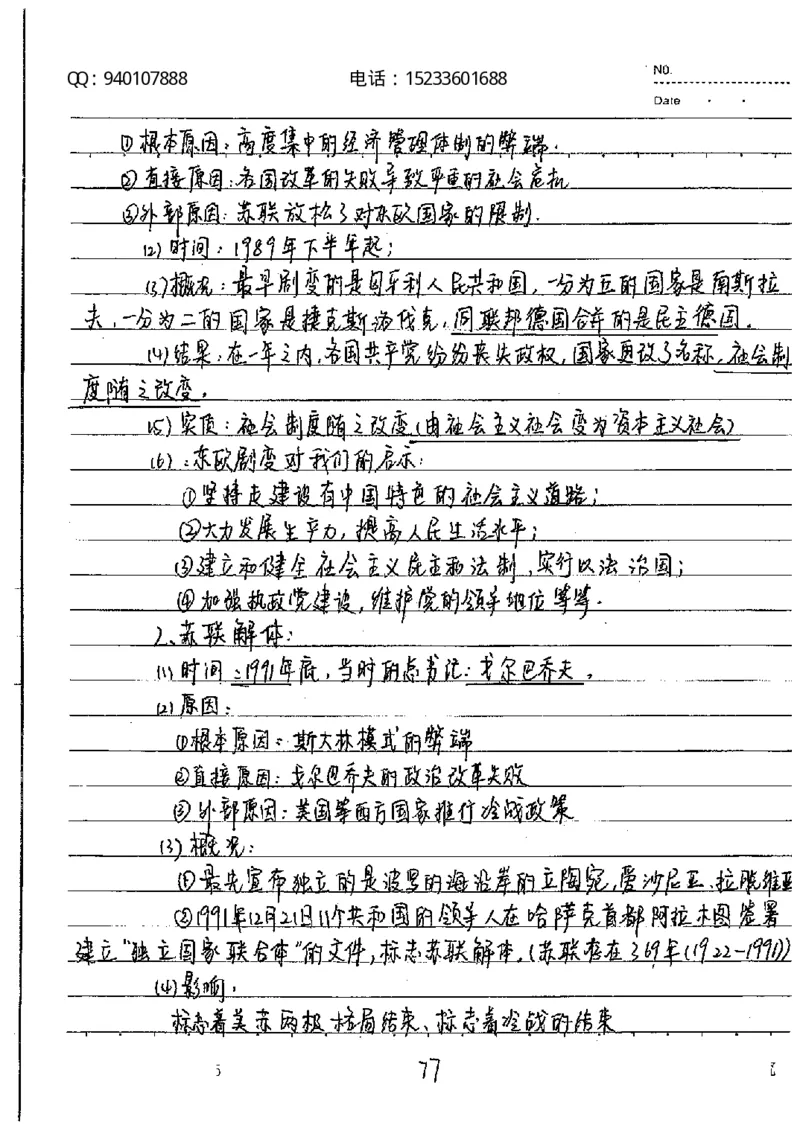 QQ：940107888 电话：15233601688 NO.
Date
①根本原因：高度集中的经济管理体制的弊端.
②直接原因：各国改革的失败导致严重的社会危机
③外部原因：苏联放松了对东欧国家的限制.
(2)时间：1989年下半年起；
(3)概况：最早剧变的是匈牙利人民共和国，一分为五的国家是南斯拉
夫，一分为二的国家是捷克斯洛伐克，同联邦德国合并的是民主德国。
(4)结果：在一年之内，各国共产党纷纷丧失政权，国家更改了名称，社会制
度随之改变。
(5)实质：社会制度随之改变(由社会主义社会变为资本主义社会)
(6)：东欧剧变对我们的启示：
①坚持走建设有中国特色的社会主义道路；
②大力发展生产力，提高人民生活水平；
③建立和健全社会主义民主和法制，实行以法治国；
④加强执政党建设，维护党的领导地位等等.
2、苏联解体：
(1)时间：1991年底，当时的总书记：戈尔巴乔夫。
(2)原因：
①根本原因：斯大林模式的弊端
②直接原因：戈尔巴乔夫的政治改革失败
③外部原因：美国等西方国家推行冷战政策
(3)概况：
①最先宣布独立的是波罗的海沿岸的立陶宛，爱沙尼亚、拉脱维亚
②1991年12月21日11个共和国的领导人在哈萨克首都阿拉木图签署
建立“独立国家联合体”的文件，标志苏联解体。(苏联存在了69年(1922-1991))
(4)影响：
标志着美苏两极格局结束、标志着冷战的结束
5 77